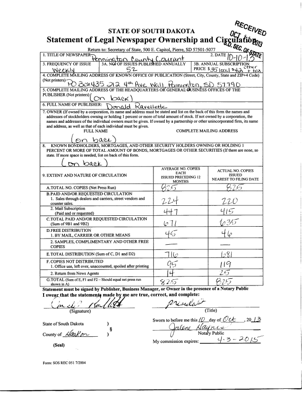 RECEIVED
OCT
SEC. OF STATE
STATE OF SOUTH DAKOTA
Statement of Legal Newspaper Ownership and Circulation
Return to: Secretary of State, 500 E. Capitol, Pierre, SD 57501-5077
1. TITLE OF NEWSPAPER Pennington County Courant
2. DATE 10-10-13
3. FREQUENCY OF ISSUE
Weekly
3A. NO. OF ISSUES PUBLISHED ANNUALLY
52
3B. ANNUAL SUBSCRIPTION
PRICE $
4. COMPLETE MAILING ADDRESS OF KNOWN OFFICE OF PUBLICATION (Street, City, County, State and ZIP+4 Code)
(Not printers)
PO Box 435 22 4th Ave Wall Pennington, SD 57790
5. COMPLETE MAILING ADDRESS OF THE HEADQUARTERS OF GENERAL BUSINESS OFFICES OF THE
PUBLISHER (Not printer)
(on back)
6. FULL NAME OF PUBLISHER: Donald Ravellette
7. OWNER (If owned by a corporation, its name and address must be stated and list on the back of this form the names and
addresses of stockholders owning or holding 1 percent or more of total amount of stock. If not owned by a corporation, the
names and addresses of the individual owners must be given. If owned by a partnership or other unincorporated firm, its name
and address, as well as that of each individual must be given.
FULL NAME
COMPLETE MAILING ADDRESS
(on back)
8. KNOWN BONDHOLDERS, MORTGAGES, AND OTHER SECURITY HOLDERS OWNING OR HOLDING 1
PERCENT OR MORE OF TOTAL AMOUNT OF BONDS, MORTGAGES OR OTHER SECURITIES (If there are none, so
state. If more space is needed, list on back of this form.
(on back)
9. EXTENT AND NATURE OF CIRCULATION
AVERAGE NO. COPIES
EACH
ISSUED PRECEDING 12
MONTHS
ACTUAL NO. COPIES
ISSUED
NEAREST TO FILING DATE
A. TOTAL NO. COPIES (Net Press Run)
825
825
B. PAID AND/OR REQUESTED CIRCULATION
1. Sales through dealers and carriers, street vendors and
counter sales.
224
220
2. Mail Subscription
(Paid and or requested)
447
415
C. TOTAL PAID AND/OR REQUESTED CIRCULATION
(Sum of 9B1 and 9B2)
671
635
D. FREE DISTRIBUTION
1. BY MAIL, CARRIER OR OTHER MEANS
45
46
2. SAMPLES, COMPLIMENTARY AND OTHER FREE
COPIES
E. TOTAL DISTRIBUTION (Sum of C, D1 and D2)
716
681
F. COPIES NOT DISTRIBUTED
1. Office use, left over, unaccounted, spoiled after printing
95
119
2. Return from News Agents
14
25
G. TOTAL (Sum of E, F1 and F2 - Should equal net press run
shown in A)
825
825
Statement must be signed by Publisher, Business Manager, or Owner in the presence of a Notary Public
I swear that the statements made by me are true, correct, and complete:
president
(Signature)
(Title)
State of South Dakota )
§
County of Haakon )
(Seal)
Sworn to before me this 10 day of Oct, 2013
Notary Public
My commission expires: 4-3-2015
Form: SOS REC 051 7/2004